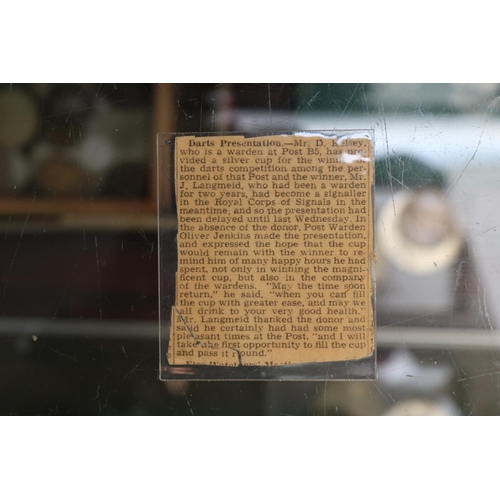 Darts Presentation.—Mr. D. Kelsey,
who is a warden at Post B5, has pro-
vided a silver cup for the winner in
the darts competition among the per-
sonnel of that Post and the winner, Mr.
J. Langmeid, who had been a warden
for two years, had become a signaller
in the Royal Corps of Signals in the
meantime, and so the presentation had
been delayed until last Wednesday. In
the absence of the donor, Post Warden
Oliver Jenkins made the presentation,
and expressed the hope that the cup
would remain with the winner to re-
mind him of many happy hours he had
spent, not only in winning the magni-
ficent cup, but also in the company
of the wardens. "May the time soon
return," he said, "when you can fill
the cup with greater ease, and may we
all drink to your very good health."
Mr. Langmeid thanked the donor and
said he certainly had had some most
pleasant times at the Post, "and I will
take the first opportunity to fill the cup
and pass it round."